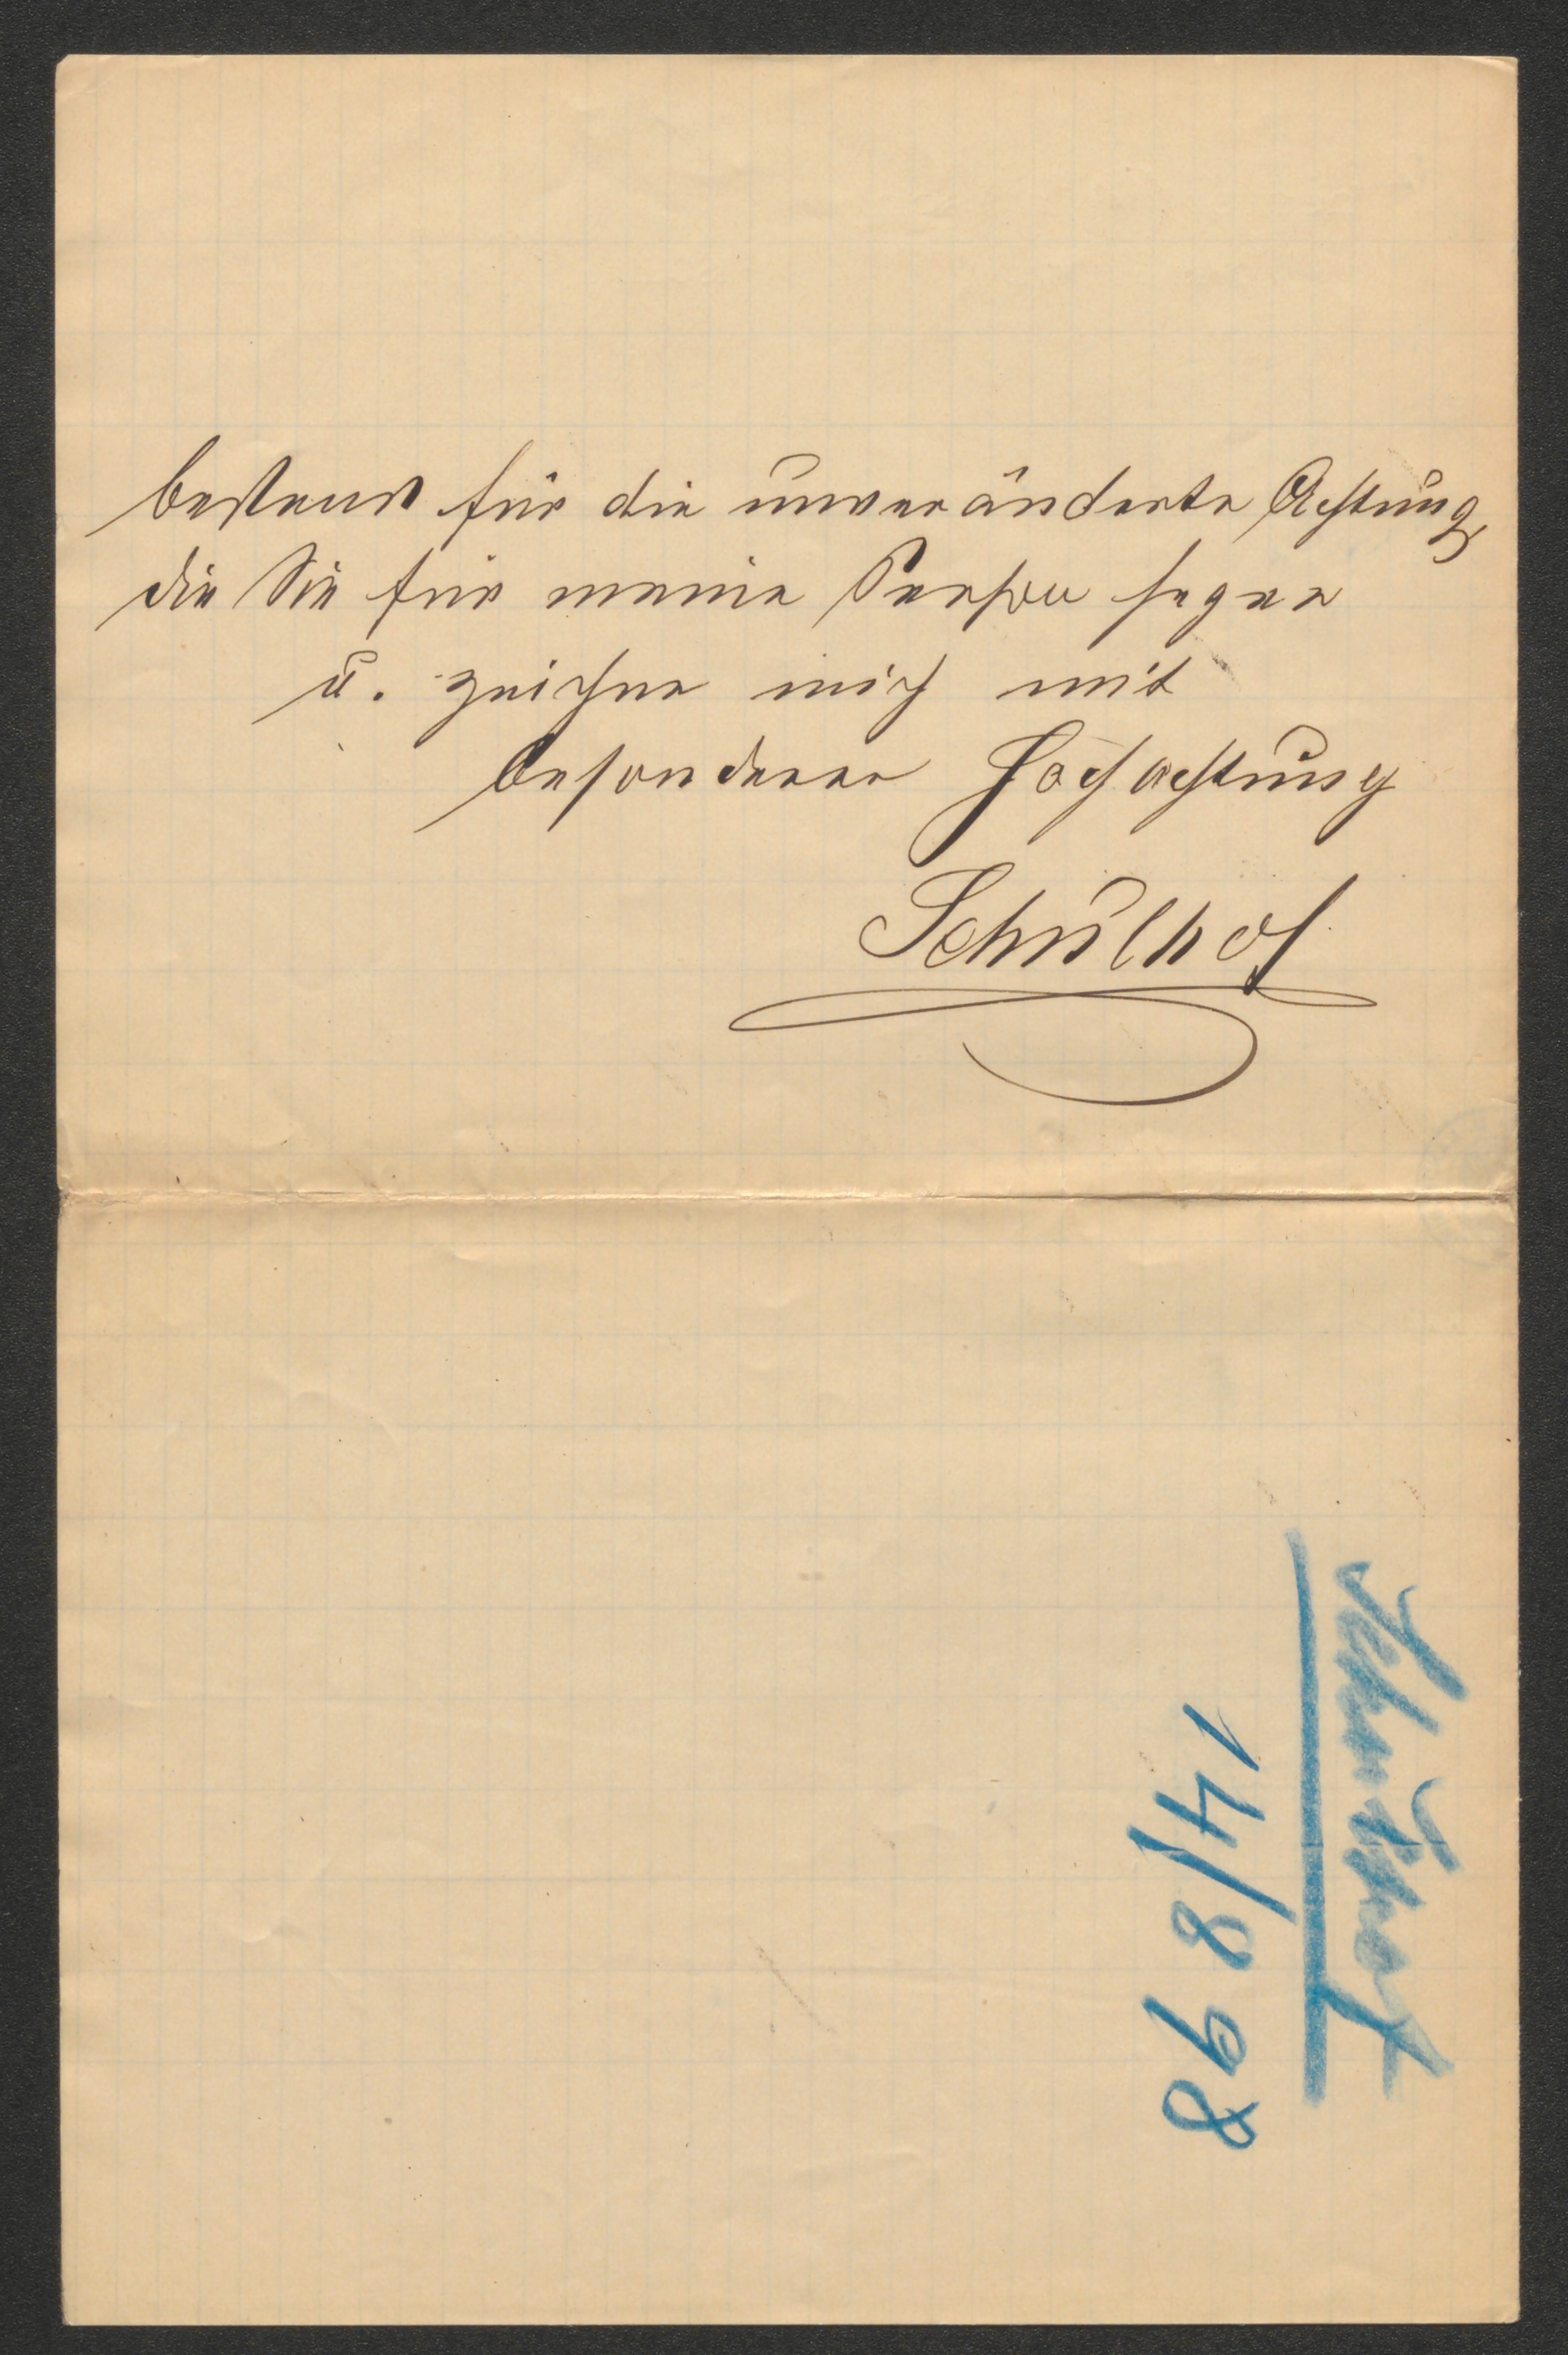 bestens für die unveränderte Achtung,
die Sie für meine Person hegen
u. zeichne mich mit
besonderer Hochachtung
Schulhof
Schulhof
14/8 98